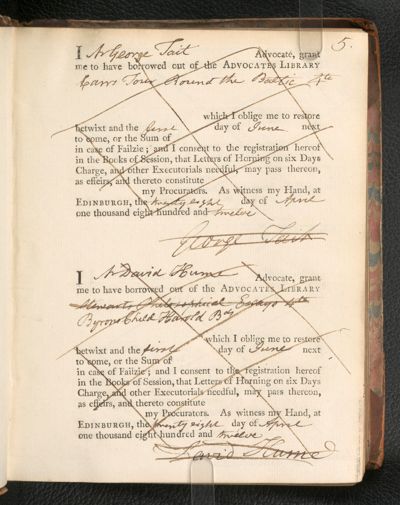 5.
I Mr George Tait Advocate, grant
me to have borrowed out of the ADVOCATES LIBRARY
Carrs Tour Round the Baltic 4to
which I oblige me to restore
betwixt and the first day of June next
to come, or the Sum of
in case of Failzie; and I consent to the registration hereof
in the Books of Session, that Letters of Horning on six Days
Charge, and other Executorials needful, may pass thereon,
as effeirs, and thereto constitute
my Procurators. As witness my Hand, at
EDINBURGH, the twenty eight day of April
one thousand eight hundred and twelve
George Tait
I Mr David Hume Advocate, grant
me to have borrowed out of the ADVOCATES LIBRARY
Stewarts Philosophical Essays 4to
Byrons Child Harold
which I oblige me to restore
betwixt and the first day of June next
to come, or the Sum of
in case of Failzie; and I consent to the registration hereof
in the Books of Session, that Letters of Horning on six Days
Charge, and other Executorials needful, may pass thereon,
as effeirs, and thereto constitute
my Procurators. As witness my Hand, at
EDINBURGH, the twenty eight day of April
one thousand eight hundred and twelve
David Hume